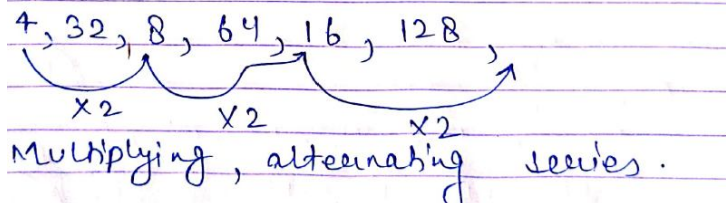 4, 32, 8, 64, 16, 128,
×2 ×2 ×2
Multiplying, alternating series.